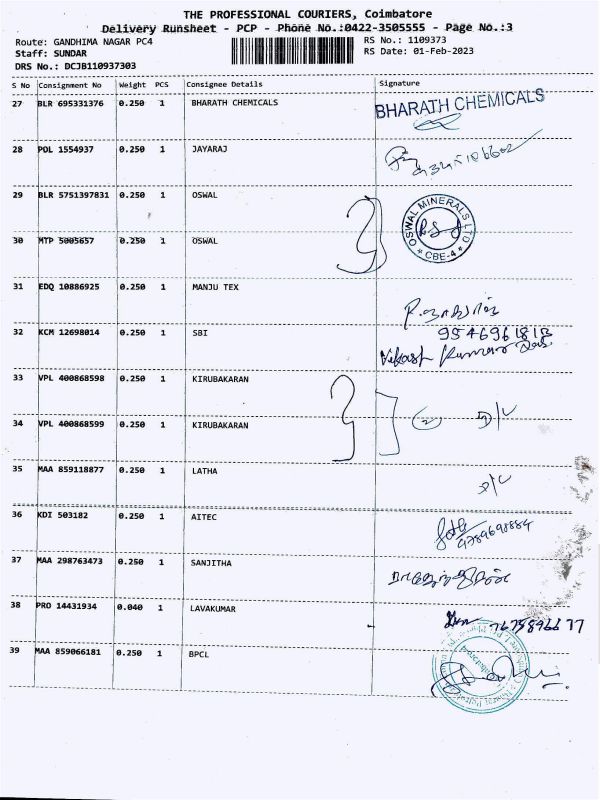 THE PROFESSIONAL COURIERS, Coimbatore
Delivery Runsheet - PCP - Phone No.:0422-3505555 - Page No.:3
Route: GANDHIMA NAGAR PC4
RS No.: 1109373
Staff: SUNDAR
RS Date: 01-Feb-2023
DRS No.: DCJB110937303
S No Consignment No Weight PCS Consignee Details Signature
27 BLR 695331376 0.250 1 BHARATH CHEMICALS BHARATH CHEMICALS
28 POL 1554937 0.250 1 JAYARAJ
29 BLR 5751397831 0.250 1 OSWAL
OSWAL MINERALS LTD
* CBE-4 *
30 MTP 5005657 0.250 1 OSWAL
31 EDQ 10886925 0.250 1 MANJU TEX
32 KCM 12698014 0.250 1 SBI 9546961818
Vikash Kumar Das
33 VPL 400868598 0.250 1 KIRUBAKARAN
34 VPL 400868599 0.250 1 KIRUBAKARAN 2 D/L
35 MAA 859118877 0.250 1 LATHA D/L
36 KDI 503182 0.250 1 AITEC
9789698884
37 MAA 298763473 0.250 1 SANJITHA
38 PRO 14431934 0.040 1 LAVAKUMAR 7675896677
39 MAA 859066181 0.250 1 BPCL